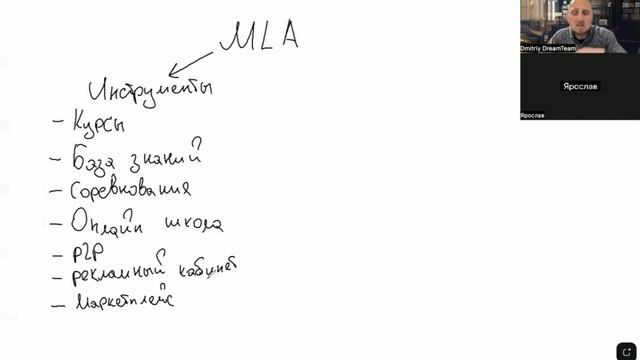 MLA
Инструменты
- Курсы
- База знаний
- Соревнования
- Онлайн школа
- P2P
- рекламный кабинет
- Маркетплейс
Dmitriy DreamTeam
Ярослав
Ярослав